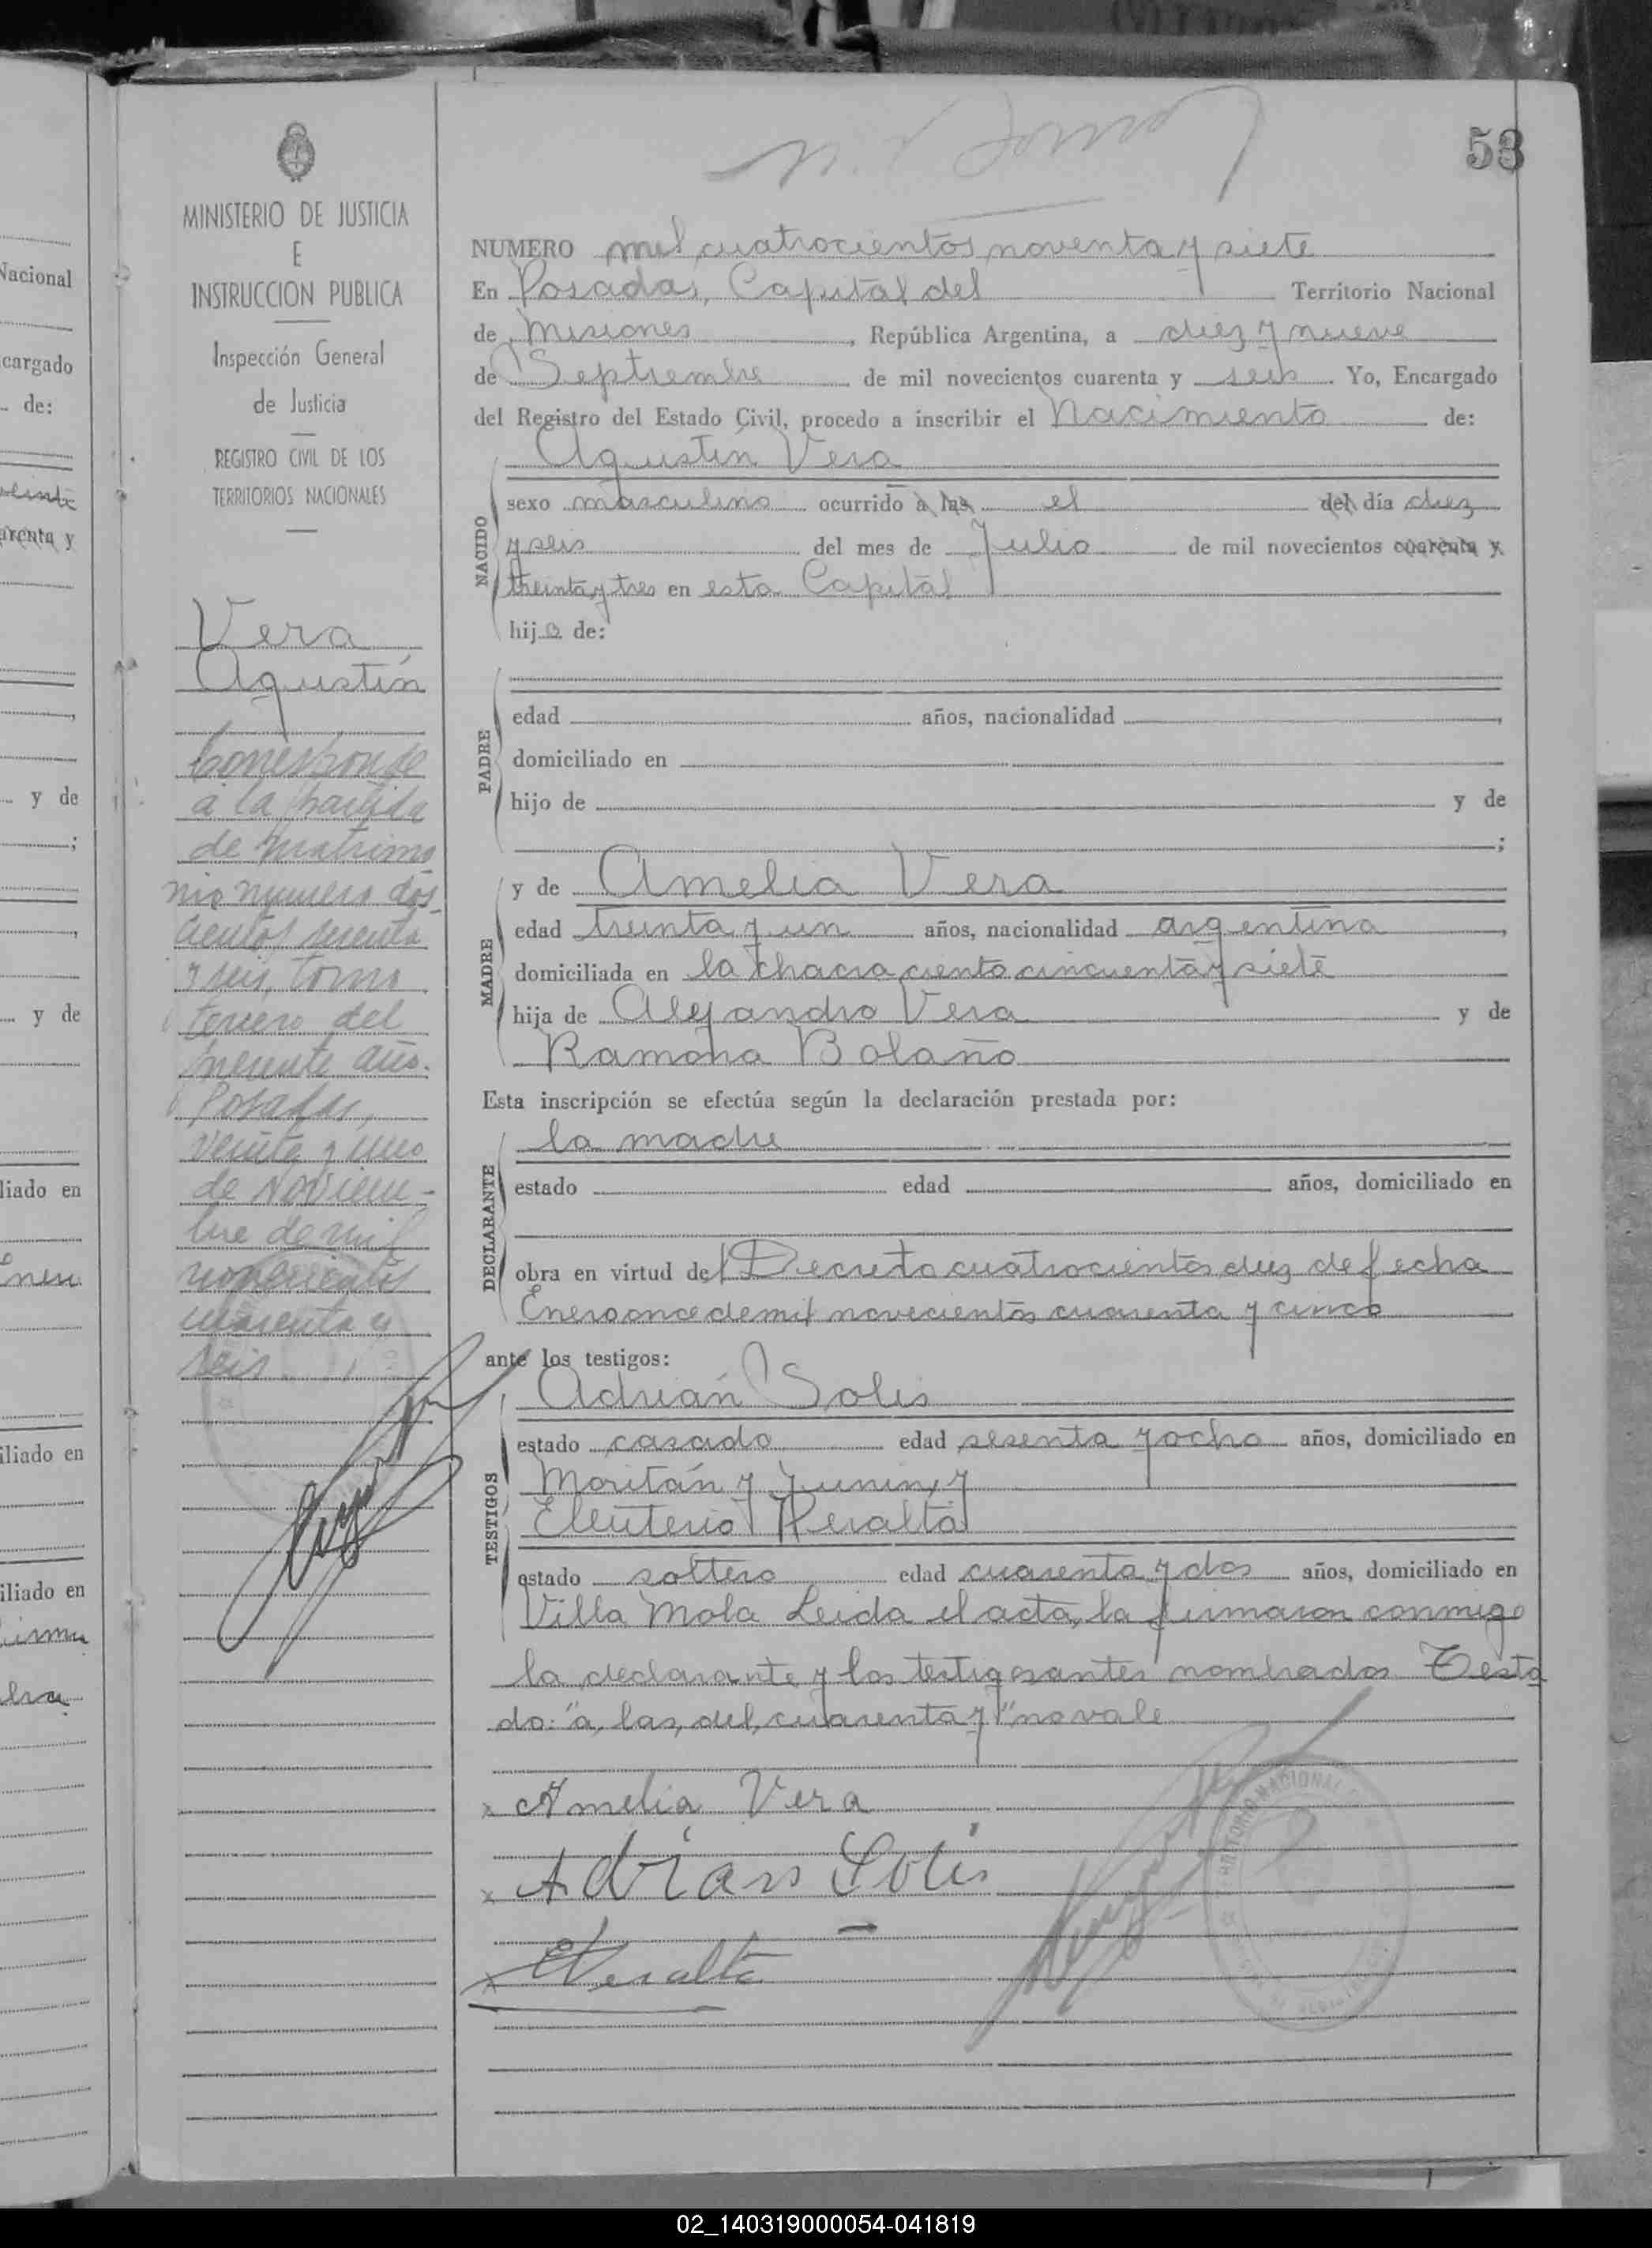 53
MINISTERIO DE JUSTICIA
E
INSTRUCCION PUBLICA
Inspección General
de Justicia
REGISTRO CIVIL DE LOS
TERRITORIOS NACIONALES
Vera
Agustín
Corresponde
a la partida
de matrimo
nio numero dos-
cientos sesenta
y seis, tomo
tercero del
presente año.
Posadas,
veinte y uno
de Noviem-
bre de mil
novecientos
cuarenta y
seis.
NUMERO mil cuatrocientos noventa y siete
En Posadas, Capital del Territorio Nacional
de Misiones, República Argentina, a diez y nueve
de Septiembre de mil novecientos cuarenta y seis. Yo, Encargado
del Registro del Estado Civil, procedo a inscribir el Nacimiento de:
Agustín Vera
NACIDO
sexo masculino ocurrido a las el del día diez
y seis del mes de Julio de mil novecientos cuarenta y
treinta y tres en esta Capital
hijo de:
PADRE
edad años, nacionalidad
domiciliado en
hijo de y de
;
MADRE
y de Amelia Vera
edad treinta y un años, nacionalidad argentina,
domiciliada en la chacra ciento cincuenta y siete
hija de Alejandro Vera y de
Ramona Bolaño
Esta inscripción se efectúa según la declaración prestada por:
DECLARANTE
la madre
estado edad años, domiciliado en
obra en virtud del Decreto cuatrocientos diez de fecha
Enero once de mil novecientos cuarenta y cinco
ante los testigos:
TESTIGOS
Adrián Solis
estado casado edad sesenta y ocho años, domiciliado en
Moritán y Junin, y
Eleuterio Peralta
estado soltero edad cuarenta y dos años, domiciliado en
Villa Mola Leida el acta, la firmaron conmigo
la declarante y los testigos antes nombrados Testa
do: "a, las, del, cuarenta y" no vale
x Amelia Vera
x Adrian Solis
x EPeralta
Nacional
cargado
de:
veinte
arenta y
y de
;
y de
liado en
iliado en
iliado en
02_140319000054-041819